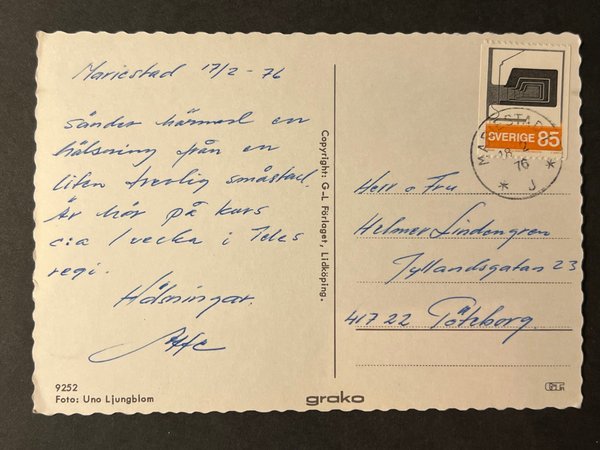 Mariestad 17/2 - 76
Sänder härmed en
hälsning från en
liten trevlig småstad.
Är här på kurs
c:a 1 vecka i Teles
regi.
Hälsningar.
Copyright: G-L Förlaget, Lidköping.
SVERIGE 85
MARIESTAD
18 2
76
* J *
Herr o Fru
Helmer Lindengren
Jyllandsgatan 23
417 22 Göteborg.
9252
Foto: Uno Ljungblom
grako